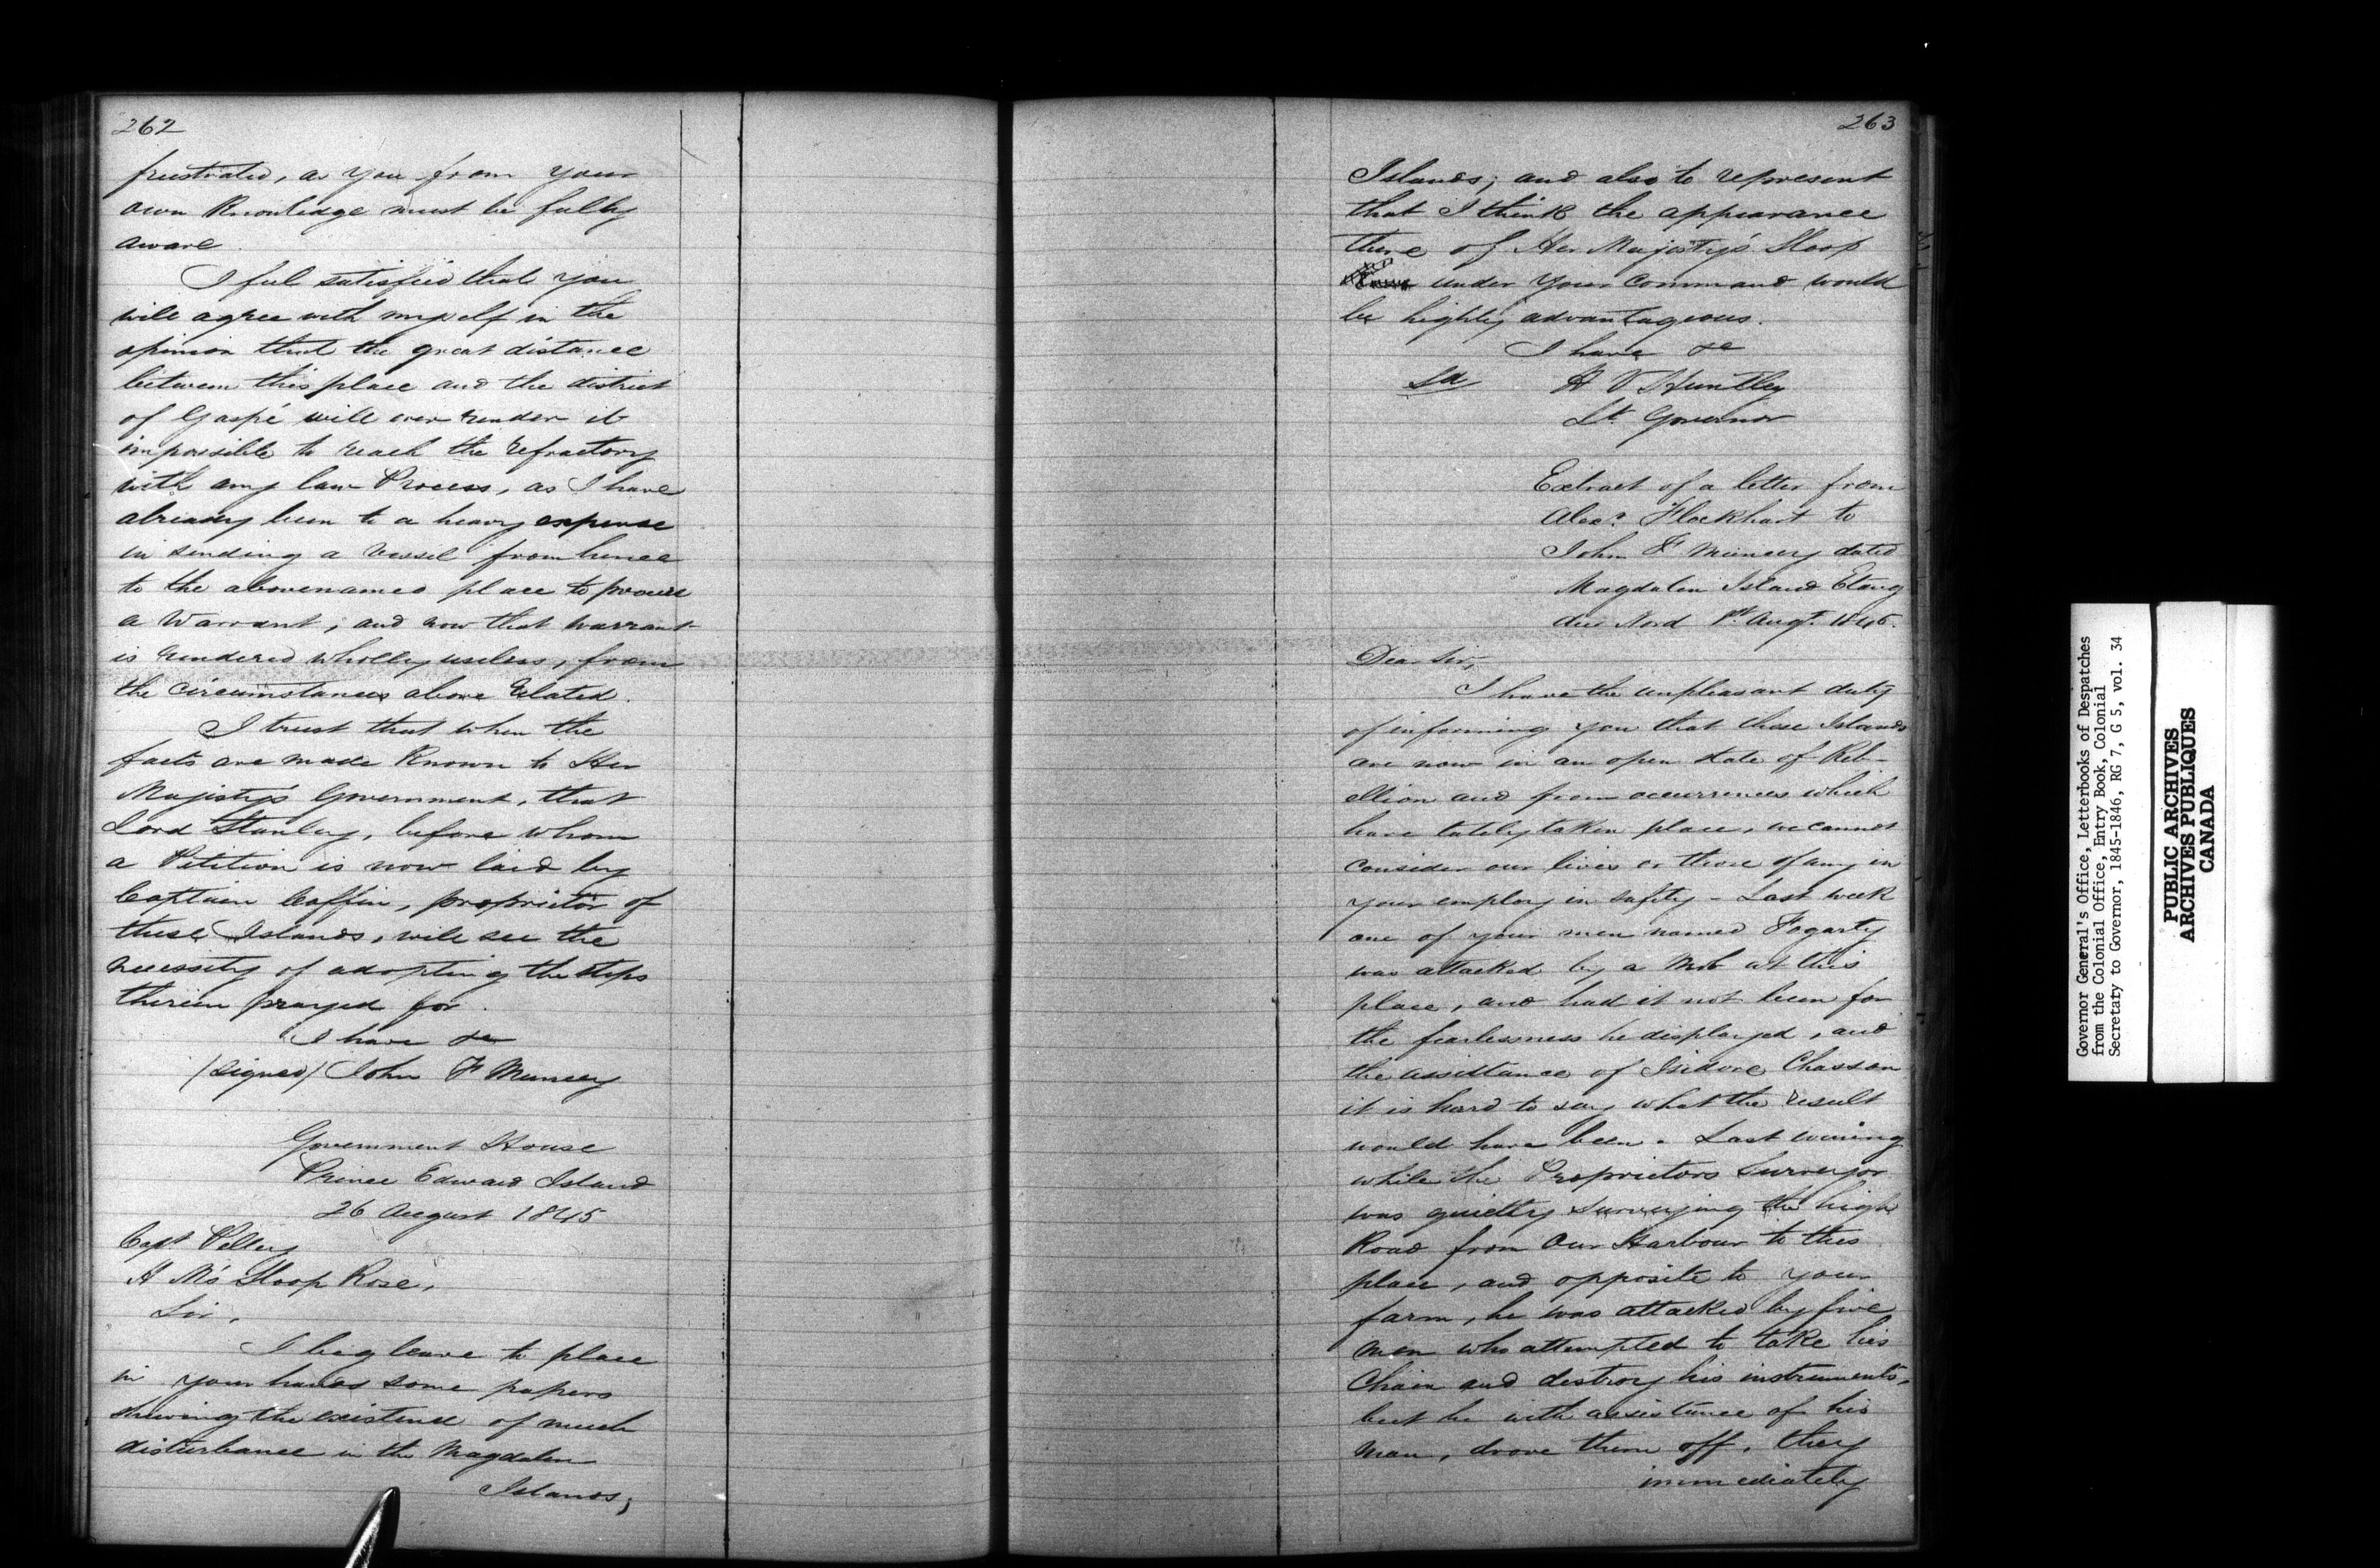 262
frustrated, as you from your
own Knowledge must be fully
aware.
I feel satisfied that you
will agree with myself in the
opinion that the great distance
between this place and the district
of Gaspé will ever render it
impossible to reach the refractory
with any law Process, as I have
already been to a heavy expense
in sending a vessel from hence
to the abovenamed place to procure
a Warrant; and now that warrant
is rendered wholly useless, from
the circumstances above related.
I trust that when the
facts are made Known to Her
Majesty's Government, that
Lord Stanley, before whom
a Petition is now laid by
Captain Coffin, proprietor of
these Islands, will see the
necessity of adopting the steps
therein prayed for.
I have &c
(signed) John F Muncey
Government House
Prince Edward Island
26 August 1845
Capt Pelley
H M's Sloop Rose,
Sir,
I beg leave to place
in your hands some papers
shewing the existence of much
disturbance in the Magdalen
Islands;
263
Islands; and also to represent
that I think the appearance
there of Her Majesty's Sloop
under your command would
be highly advantageous.
I have &c
Sd H V Huntley
Lt. Governor
Extract of a letter from
Alexr. Flockhart to
John F Muncey dated
Magdalen Island Etang
du Nord Augt. 1845.
Dear Sir,
I have the unpleasant duty
of informing you that these Islands
are now in an open state of Reb-
ellion and from occurrences which
have lately taken place, we cannot
consider our lives or those of any in
your employ in safety - Last week
one of your men named Fogarty
was attacked by a Mob at this
place, and had it not been for
the fearlessness he displayed, and
the assistance of Isidore Chasson
it is hard to say what the result
would have been. Last evening
while the Proprietors Surveyor
was quietly surveying the high
Road from Our Harbour to this
place, and opposite to your
farm, he was attacked by five
men who attempted to take his
Chain and destroy his instruments,
but he with assistance of his
man, drove them off. they
immediately
Governor General's Office, Letterbooks of Despatches
from the Colonial Office, Entry Book, Colonial
Secretary to Governor, 1845-1846, RG 7, G 5, vol. 34
PUBLIC ARCHIVES
ARCHIVES PUBLIQUES
CANADA